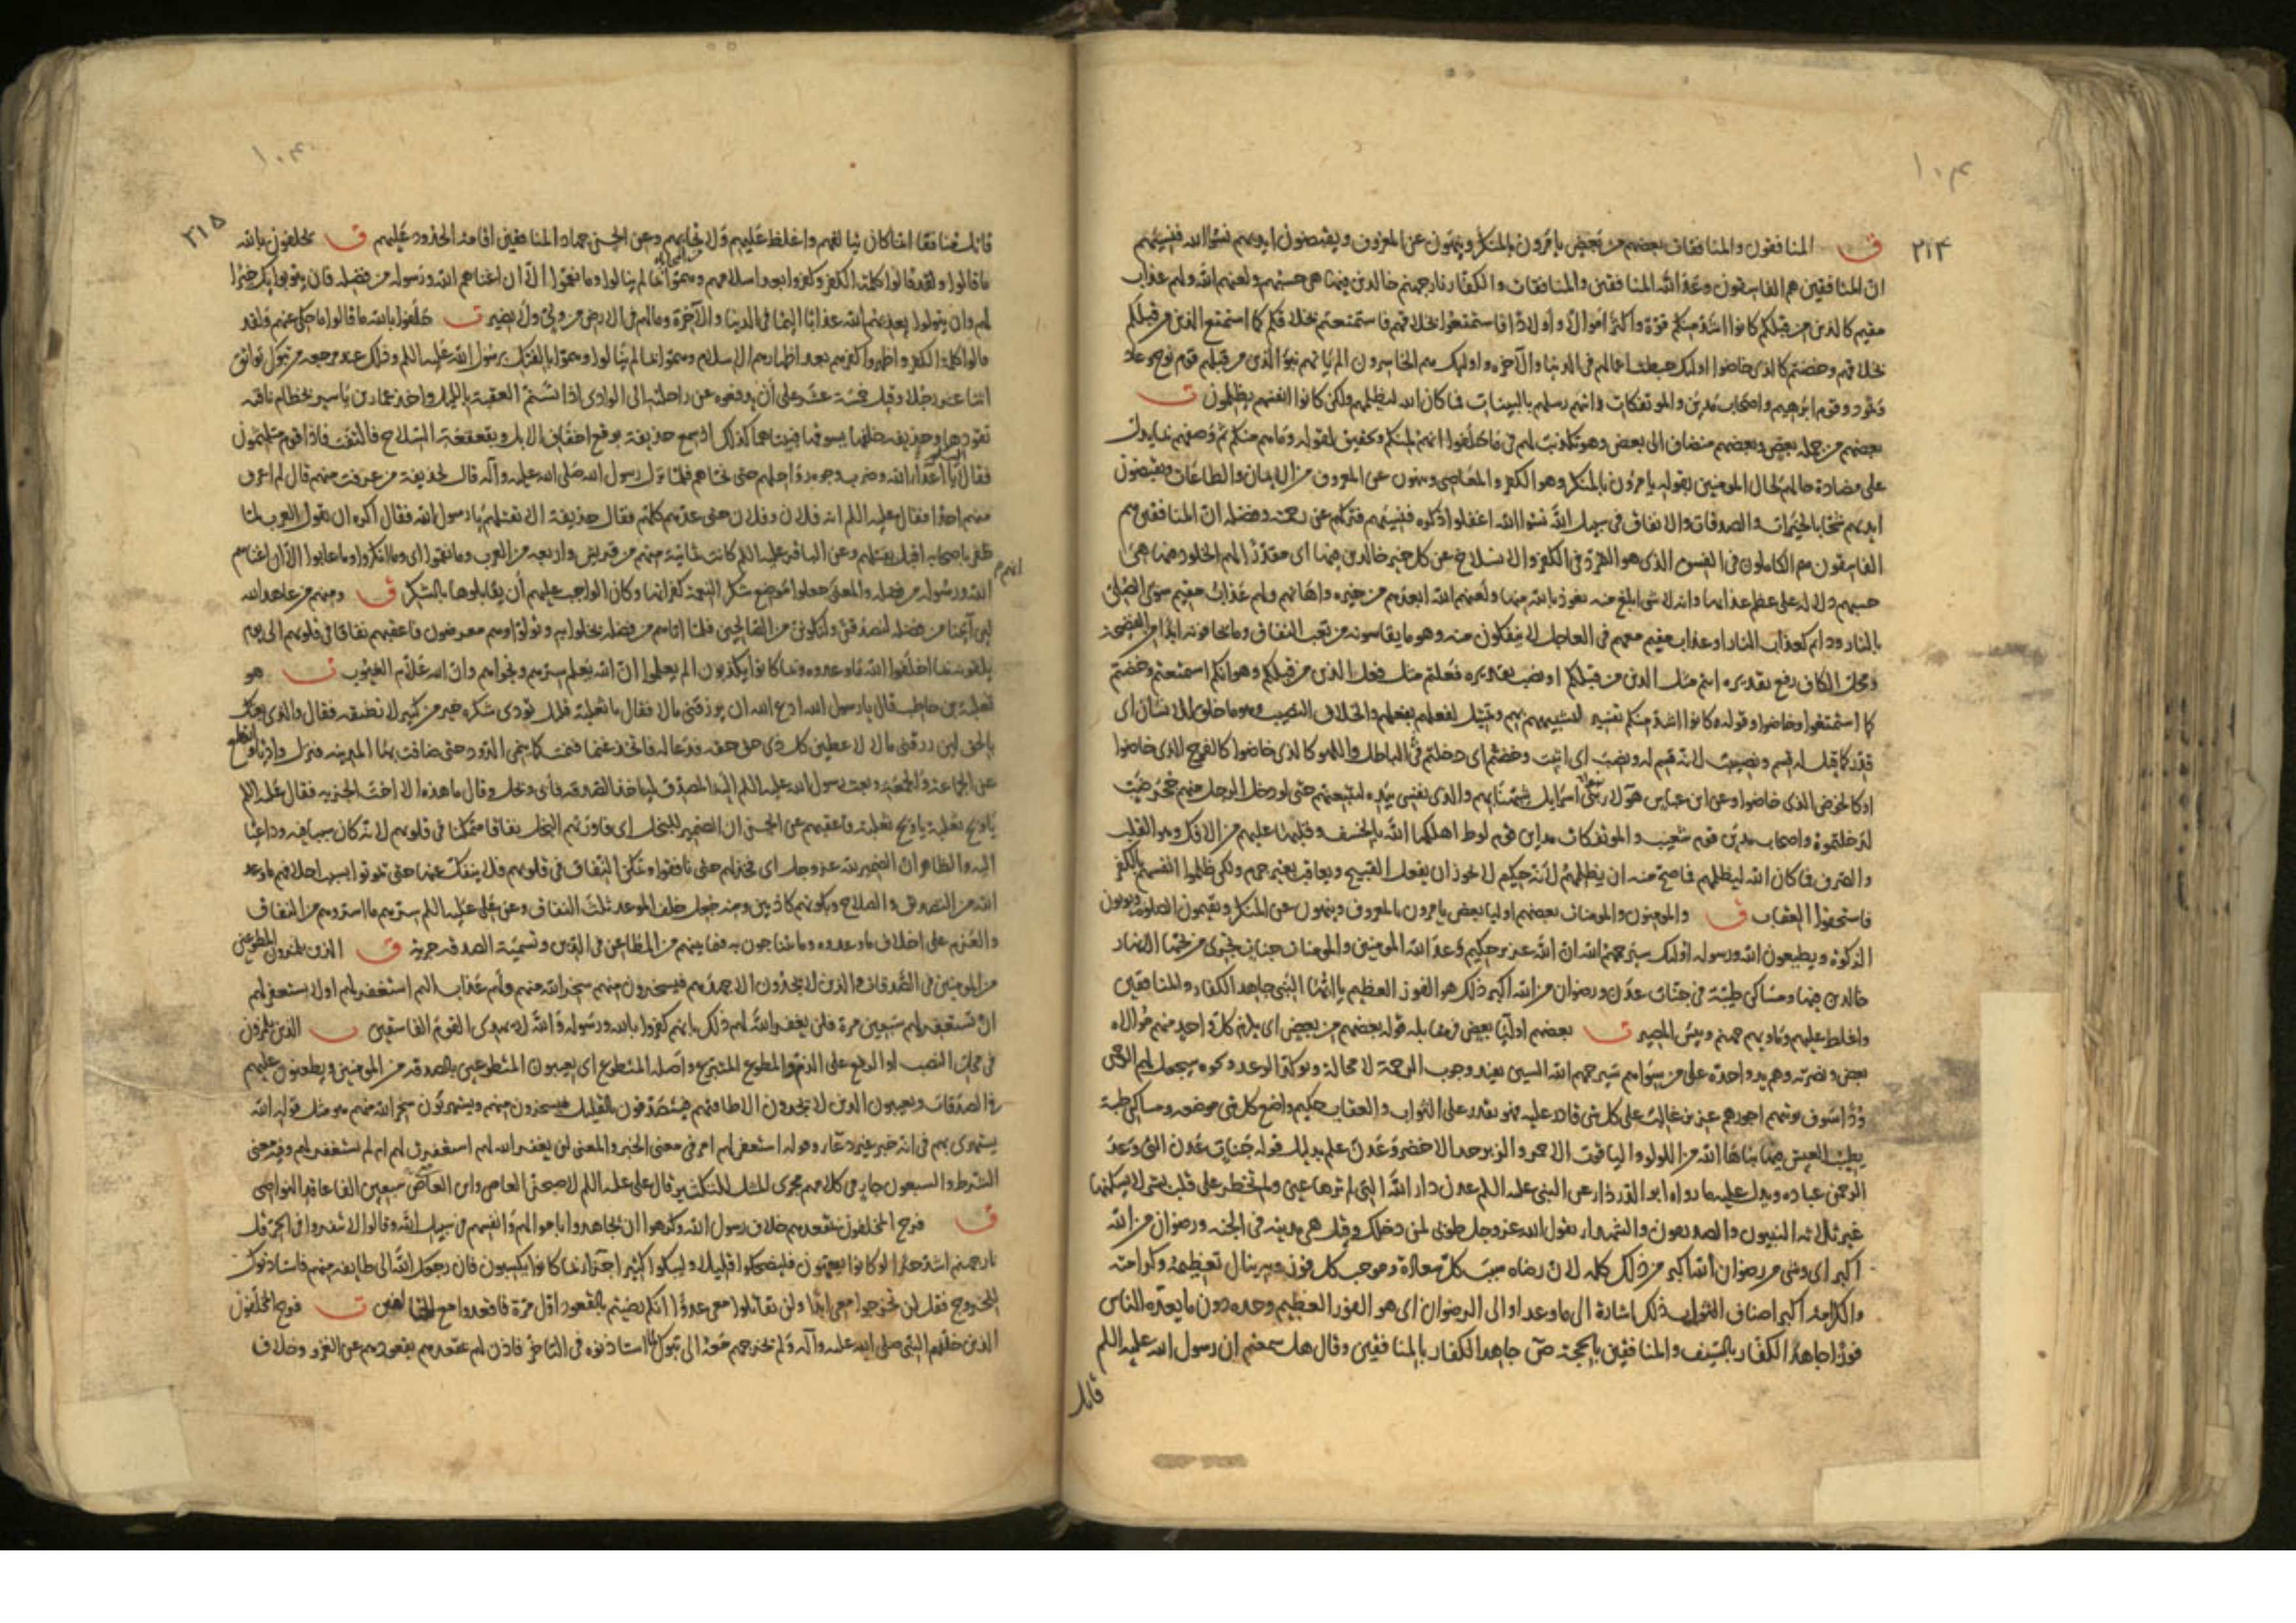 ١٠٤
٢١٤
ق المنافقون والمنافقات بعضهم من بعض يامرون بالمنكر وينهون عن المعروف ويقبضون ايديهم نسوا الله فنسيهم
ان المنافقين هم الفاسقون وعد الله المنافقين والمنافقات والكفار نار جهنم خالدين فيها هي حسبهم ولعنهم الله ولهم عذاب
مقيم كالذين من قبلكم كانوا اشد منكم قوة واكثر اموالا واولادا فاستمتعوا بخلاقهم فاستمتعتم بخلاقكم كما استمتع الذين من قبلكم
بخلاقهم وخضتم كالذي خاضوا اولئك حبطت اعمالهم في الدنيا والآخرة واولئك هم الخاسرون الم ياتهم نبؤ الذين من قبلهم قوم نوح وعاد
وثمود وقوم ابرهيم واصحاب مدين والموتفكات اتتهم رسلهم بالبينات فما كان الله ليظلمهم ولكن كانوا انفسهم يظلمون ت
بعضهم من جملة بعض وبعضهم مضاف الى بعض وهو تكذيب لهم في ما حلفوا انهم لمنكم وتحقيق لقوله وما هم منكم ثم وصفهم بما يدل
على مضادة حالهم لحال المومنين بقوله يامرون بالمنكر وهو الكفر والمعاصي وينهون عن المعروف من الايمان والطاعات ويقبضون
ايديهم شحا بالخيرات والصدقات والانفاق في سبيل الله نسوا الله اغفلوا ذكره فنسيهم فتركهم عن رحمته وفضله ان المنافقين هم
الفاسقون هم الكاملون في الفسق الذي هو التمرد في الكفر والانسلاخ عن كل خير خالدين فيها اي مقدرا لهم الخلود فيها هي
حسبهم دلالة على عظم عذابها وانه لا شي ابلغ منه نعوذ بالله منها ولعنهم الله ابعدهم من خيره واهانهم ولهم عذاب مقيم سوى الصلي
بالنار ودايم كعذاب النار او عذاب مقيم معهم في العاجل لا ينفكون منه وهو ما يقاسونه من تعب النفاق وما يخافونه ابدا من الفضيحة
ومحل الكاف رفع تقديره انتم مثل الذين من قبلكم او نصب تقديره فعلتم مثل فعل الذين من قبلكم وهو انكم استمتعتم وخضتم
كما استمتعوا وخاضوا وقوله كانوا اشد منكم تفسير لتشبيههم بهم وتمثيل لفعلهم بفعلهم والخلاق النصيب وهو ما خلق للانسان اي
قدر كما قيل له قسم ونصيب لانه قسم له ونصب اي اثبت وخضتم اي دخلتم في الباطل واللهو كالذي خاضوا كالفوج الذي خاضوا
او كالخوض الذي خاضوا وعن ابن عباس هولاء بنو اسرايل شبهنا بهم والذي نفسي بيده لتتبعنهم حتى لو دخل الرجل منهم جحر ضب
لدخلتموه واصحاب مدين قوم شعيب والموتفكات مداين قوم لوط اهلكها الله بالخسف وقلبها عليهم من الافك وهو القلب
والصرف فما كان الله ليظلمهم فما صح منه ان يظلمهم لانه حكيم لا يجوز ان يفعل القبيح ويعاقب بغير جرم ولكن ظلموا انفسهم بالكفر
فاستحقوا العقاب ق والمومنون والمومنات بعضهم اوليا بعض يامرون بالمعروف وينهون عن المنكر ويقيمون الصلوة ويوتون
الزكوة ويطيعون الله ورسوله اولئك سيرحمهم الله ان الله عزيز حكيم وعد الله المومنين والمومنات جنات تجري من تحتها الانهار
خالدين فيها ومساكن طيبة في جنات عدن ورضوان من الله اكبر ذلك هو الفوز العظيم يا ايها النبي جاهد الكفار والمنافقين
واغلظ عليهم وماويهم جهنم وبيس المصير ت بعضهم اوليا بعض في مقابلة قوله بعضهم من بعض اي يلزم كل واحد منهم موالاة
بعض ونصرته وهم يد واحدة على من سواهم سيرحمهم الله السين يفيد وجوب الرحمة لا محالة ويوكد الوعد ونحوه سيجعل لهم الرحمن
ودا سوف يوتيهم اجورهم عزيز غالب على كل شي قادر عليه فهو يقدر على الثواب والعقاب حكيم واضع كل شي موضعه ومساكن طيبة
يطيب العيش فيها بناها الله من اللولو والياقوت الاحمر والزبرجد الاخضر وعدن علم بدليل قوله جنات عدن التي وعد
الرحمن عباده ويدل عليه ما رواه ابو الدرداء عن النبي عليه السلم عدن دار الله التي لم ترها عين ولم تخطر على قلب بشر لا يسكنها
غير ثلاثة النبيون والصديقون والشهداء يقول الله عز وجل طوبى لمن دخلك وقيل هي مدينة في الجنة ورضوان من الله
اكبر اي وشي من رضوان الله اكبر من ذلك كله لان رضاه سبب كل سعادة وموجب كل فوز وبه ينال تعظيمه وكرامته
والكرامة اكبر اصناف الثواب ذلك اشارة الى ما وعد او الى الرضوان اي هو الفوز العظيم وحده دون ما يعده الناس
فوزا جاهد الكفار بالسيف والمنافقين بالحجة ص جاهد الكفار بالمنافقين وقال هل سمعتم ان رسول الله عليه السلم
قاتل
١٠٤
٢١٥
قاتل منافقا انما كان يتالفهم واغلظ عليهم ولا تحابهم وعن الحسن جهاد المنافقين اقامة الحدود عليهم ق يحلفون بالله
ما قالوا ولقد قالوا كلمة الكفر وكفروا بعد اسلامهم وهموا بما لم ينالوا وما نقموا الا ان اغناهم الله ورسوله من فضله فان يتوبوا يك خيرا
لهم وان يتولوا يعذبهم الله عذابا اليما في الدنيا والآخرة وما لهم في الارض من ولي ولا نصير ت حلفوا بالله ما قالوا ما حكي عنهم ولقد
قالوا كلمة الكفر واظهروا كفرهم بعد اظهارهم الاسلام وهموا بما لم ينالوا وهموا بالفتك برسول الله عليه السلم وذلك عند مرجعه من تبوك تواثق
اثنا عشر رجلا وقيل خمسة عشر على ان يدفعوه عن راحلته الى الوادي اذا تسنم العقبة بالليل واخذ عمار بن ياسر بخطام ناقته
يقودها وحذيفة خلفها يسوقها فبينا هما كذلك اذ سمع حذيفة بوقع اخفاف الابل وبقعقعة السلاح فالتفت فاذا قوم متلثمون
فقال اليكم يا اعداء الله وضرب وجوه رواحلهم حتى نحاهم فلما نزل رسول الله صلى الله عليه وآله قال لحذيفة من عرفت منهم قال لم اعرف
منهم احدا فقال عليه السلم انه فلان وفلان حتى عدهم كلهم فقال حذيفة الا تقتلهم يا رسول الله فقال اكره ان تقول العرب لما
ظفر باصحابه اقبل يقتلهم وعن الباقر عليه السلم كانت ثمانية منهم من قريش واربعة من العرب وما نقموا اي وما انكروا وما عابوا الا ان اغناهم
الله ورسوله من فضله والمعنى جعلوا موضع شكر النعمة كفرانها وكان الواجب عليهم ان يقابلوها بالشكر ق ومنهم من عاهد الله
لين آتينا من فضله لنصدقن ولنكونن من الصالحين فلما اتاهم من فضله بخلوا به وتولوا وهم معرضون فاعقبهم نفاقا في قلوبهم الى يوم
يلقونه بما اخلفوا الله ما وعدوه وبما كانوا يكذبون الم يعلموا ان الله يعلم سرهم ونجواهم وان الله علام الغيوب ت هو
ثعلبة بن حاطب قال يا رسول الله ادع الله ان يرزقني مالا فقال يا ثعلبة قليل تودي شكره خير من كثير لا تطيقه فقال والذي بعثك
بالحق لين رزقني مالا لاعطين كل ذي حق حقه فدعا له فاتخذ غنما فنمت كما ينمي الدود حتى ضاقت بها المدينة فنزل واديا وانقطع
عن الجماعة والجمعة وبعث رسول الله عليه السلم اليه المصدق لياخذ الصدقة فابى وبخل وقال ما هذه الا اخت الجزية فقال عليه السلم
يا ويح ثعلبة يا ويح ثعلبة فاعقبهم عن الحسن ان الضمير للبخل اي فاورثهم البخل نفاقا متمكنا في قلوبهم لانه كان سببا فيه وداعيا
اليه والظاهر ان الضمير لله عز وجل اي فخذلهم حتى نافقوا وتمكن النفاق في قلوبهم فلا ينفك عنها حتى يموتوا بسبب اخلافهم ما وعدوا
الله من التصدق والصلاح وبكونهم كاذبين ومنه جعل خلف الموعد ثلث النفاق وعن علي عليه السلم سرهم ما اسروه من النفاق
والعزم على اخلاف ما وعدوه وما يتناجون به فيما بينهم من المطاعن في الدين وتسمية الصدقة جزية ق الذين يلمزون المطوعين
من المومنين في الصدقات والذين لا يجدون الا جهدهم فيسخرون منهم سخر الله منهم ولهم عذاب اليم استغفر لهم او لا تستغفر لهم
ان تستغفر لهم سبعين مرة فلن يغفر الله لهم ذلك بانهم كفروا بالله ورسوله والله لا يهدي القوم الفاسقين ت الذين يلمزون
في محل النصب او الرفع على الذم والمطوع المتبرع واصله المتطوع اي يعيبون المتطوعين بالصدقة من المومنين ويطعنون عليهم
في الصدقات ويعيبون الذين لا يجدون الا طاقتهم فيتصدقون بالقليل فيسخرون منهم ويستهزؤن سخر الله منهم هو مثل قوله الله
يستهزئ بهم في انه خبر غير دعاء وقوله استغفر لهم امر في معنى الخبر والمعنى لن يغفر الله لهم استغفرت لهم ام لم تستغفر لهم وفيه معنى
الشرط والسبعون جار في كلامهم مجرى المثل للتكثير قال علي عليه السلم لاصبحن العاص وابن العاص سبعين الفا عاقدي النواصي
ق فرح المخلفون بمقعدهم خلاف رسول الله وكرهوا ان يجاهدوا باموالهم وانفسهم في سبيل الله وقالوا لا تنفروا في الحر قل
نار جهنم اشد حرا لو كانوا يفقهون فليضحكوا قليلا وليبكوا كثيرا جزاء بما كانوا يكسبون فان رجعك الله الى طايفة منهم فاستاذنوك
للخروج فقل لن تخرجوا معي ابدا ولن تقاتلوا معي عدوا انكم رضيتم بالقعود اول مرة فاقعدوا مع الخالفين ت فرح المخلفون
الذين خلفهم النبي صلى الله عليه وآله ولم يخرجهم معه الى تبوك لما استاذنوه في التاخر فاذن لهم بمقعدهم بقعودهم عن الغزو وخلاف